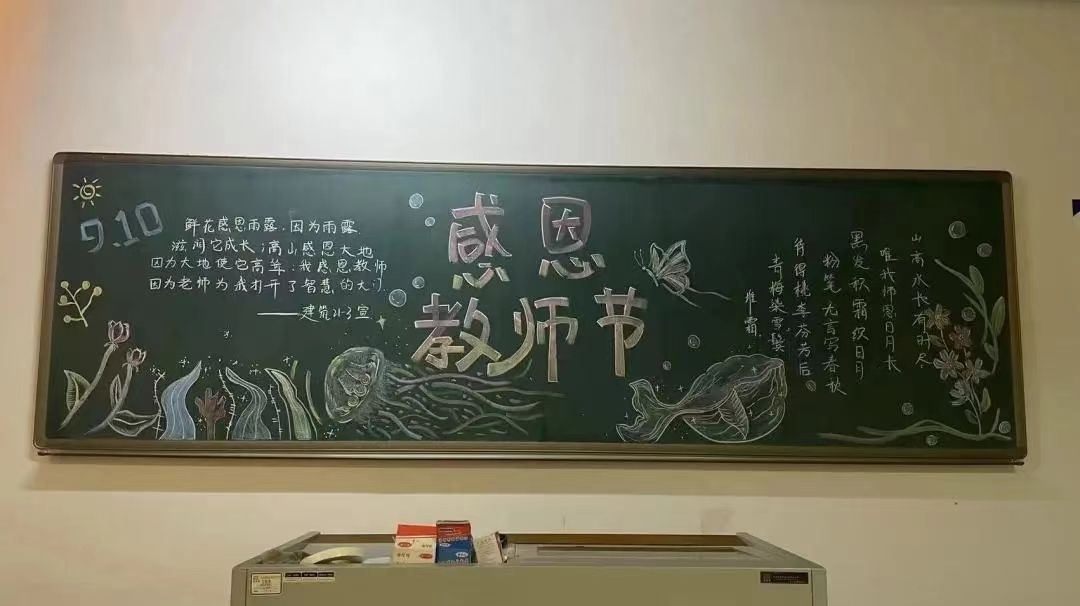 9.10
鲜花感恩雨露,因为雨露
滋润它成长;高山感恩大地
因为大地使它高耸;我感恩教师
因为老师为我打开了智慧的大门
——建筑21-3宣
感恩
教师节
山高水长有时尽
唯我师恩日月长
黑发积霜织日月
粉笔无言写春秋
育得桃李芬芳后
青梅染雪鬓
堆霜